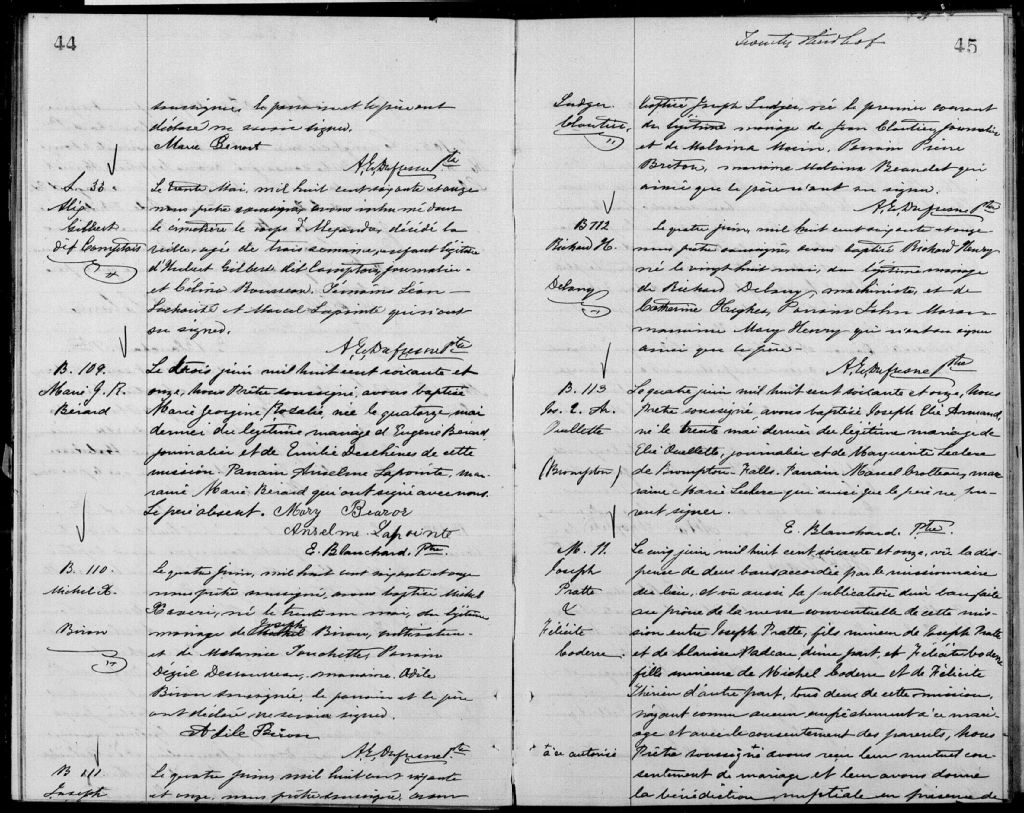 44
soussignée, le parrain et le père ont
déclaré ne savoir signer.
Marie Benoit
A. E. Dufresne Ptre
S. 33
Alex
Gilbert
dit Comptois
Le trente Mai, mil huit cent soixante et onze
nous prêtre soussigné avons inhumé dans
le cimetière le corps d'Alexandre, décédé la
veille, agé de trois semaines, enfant légitime
d'Hubert Gilbert dit Comptois, journalier
et Céline Rousseau. Témoins Léon
et Marcel Lapointe qui n'ont
su signer.
A. E. Dufresne Ptre
B. 109.
Marie G. R.
Bérard
Le trois juin mil huit cent soixante et
onze, Nous Prêtre soussigné, avons baptisé
Marie Georgine Rosalie, née le quatorze mai
dernier du légitime mariage d'Eugène Bérard,
journalier et de Emilie Deschènes de cette
mission Parrain Anselme Lapointe, mar-
raine Marie Bérard qui ont signé avec nous.
Le père absent. Mary Bearor
Anselme Lapointe
E. Blanchard, Ptre
B. 110
Michel X.
Biron
Le quatre Juin, mil huit cent soixante et onze
nous prêtre soussigné, avons baptisé Michel
né le trente un mai, du légitime
mariage de Joseph Biron, cultivateur
et de Touchette, Parrain
marraine, Odile
Biron soussignée, le parrain et le père
ont déclaré ne savoir signer.
Odile Biron
A. E. Dufresne Ptre
B 111
Joseph
Le quatre Juin, mil huit cent soixante
et onze, nous prêtre soussigné, avons
45
Ludger
Cloutier,
baptisé Joseph Ludger, né le premier courant
du légitime mariage de Jean Cloutier, journalier
et de Malvina Morin, Parrain Pierre
Breton, marraine Malvina Beaudet qui
ainsi que le père n'ont su signer.
A. E. Dufresne Ptre
B 112
Richard H.
Delany
Le quatre juin, mil huit cent soixante et onze
nous prêtre soussigné, avons baptisé Richard Henry
né le vingt huit mai, du légitime mariage
de Richard Delany, machiniste, et de
Catherine Hughes, Parrain John Moran
marraine Mary Henry qui n'ont su signer
ainsi que le père.
A. E. Dufresne Ptre
B. 113
Jos. E. Ar.
Ouellette
(Brompton)
Le quatre juin mil huit cent soixante et onze, Nous
Prêtre soussigné avons baptisé Joseph Elie Armand,
né le trente mai dernier du légitime mariage de
Elie Ouellette, journalier et de Marguerite Leclerc
de Brompton Falls. Parrain Marcel Croteau, mar-
raine Marie Leclerc qui ainsi que le père ne pu-
rent signer.
E. Blanchard. Ptre.
M. 11.
Joseph
Pratte
&
Félicité
Coderre
Le cinq juin mil huit cent soixante et onze, vu la dis-
pense de deux bans accordée par le missionnaire
du lieu, et vu aussi la publication d'un ban faite
au prône de la messe conventuelle de cette mis-
sion entre Joseph Pratte, fils mineur de Joseph Pratte
et de Clarisse Nadeau d'une part, et Félicité Coderre
fille mineure de Michel Coderre et de Félicité
Therien d'autre part, tous deux de cette mission,
n'ayant connu aucun empêchement à ce mari-
age et avec le consentement des parents, Nous
+ à ce autorisé
Prêtre soussigné + avons reçu leur mutuel con-
sentement de mariage et leur avons donné
la bénédiction nuptiale en présence de